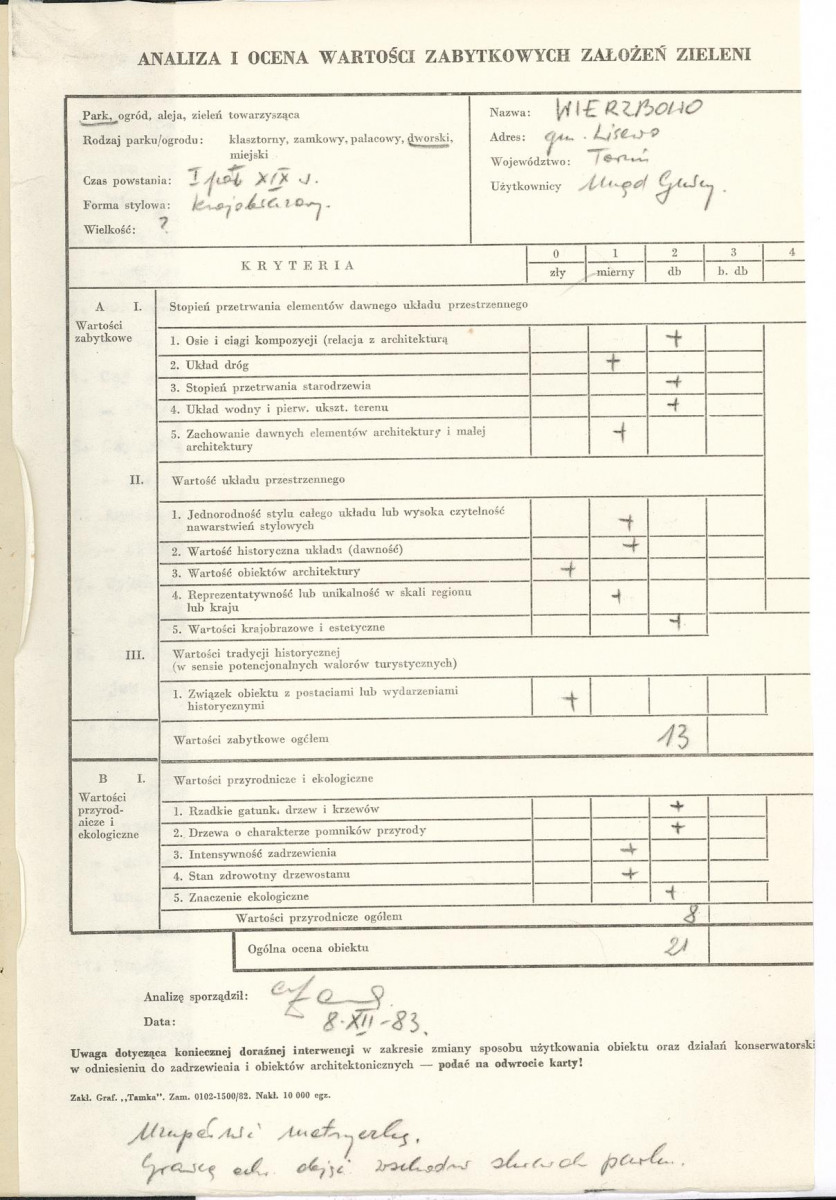 ANALIZA I OCENA WARTOŚCI ZABYTKOWYCH ZAŁOŻEŃ ZIELENI
Park, ogród, aleja, zieleń towarzysząca
Rodzaj parku/ogrodu: klasztorny, zamkowy, pałacowy, dworski,
miejski
Czas powstania: I poł XIX w.
Forma stylowa: krajobrazowy.
Wielkość: ?
Nazwa: WIERZBOWO
Adres: gm. Lisewo
Województwo: Toruń
Użytkownicy Urząd Gminy.
KRYTERIA
0 1 2 3 4
zły mierny db b. db
A I. Stopień przetrwania elementów dawnego układu przestrzennego
Wartości
zabytkowe
1. Osie i ciągi kompozycji (relacja z architekturą +
2. Układ dróg +
3. Stopień przetrwania starodrzewia +
4. Układ wodny i pierw. ukszt. terenu +
5. Zachowanie dawnych elementów architektury i małej +
architektury
II. Wartość układu przestrzennego
1. Jednorodność stylu całego układu lub wysoka czytelność
nawarstwień stylowych +
2. Wartość historyczna układu (dawność) +
3. Wartość obiektów architektury +
4. Reprezentatywność lub unikalność w skali regionu +
lub kraju
5. Wartości krajobrazowe i estetyczne +
III. Wartości tradycji historycznej
(w sensie potencjonalnych walorów turystycznych)
1. Związek obiektu z postaciami lub wydarzeniami
historycznymi +
Wartości zabytkowe ogółem 13
B I. Wartości przyrodnicze i ekologiczne
Wartości
przyrod-
nicze i
ekologiczne
1. Rzadkie gatunki drzew i krzewów +
2. Drzewa o charakterze pomników przyrody +
3. Intensywność zadrzewienia +
4. Stan zdrowotny drzewostanu +
5. Znaczenie ekologiczne +
Wartości przyrodnicze ogółem 8
Ogólna ocena obiektu 21
Analizę sporządził:
Data: 8-XII-83.
Uwaga dotycząca koniecznej doraźnej interwencji w zakresie zmiany sposobu użytkowania obiektu oraz działań konserwatorski
w odniesieniu do zadrzewienia i obiektów architektonicznych — podać na odwrocie karty!
Zakł. Graf. „Tamka". Zam. 0102-1500/82. Nakł. 10 000 egz.
Uzupełnić
parku.